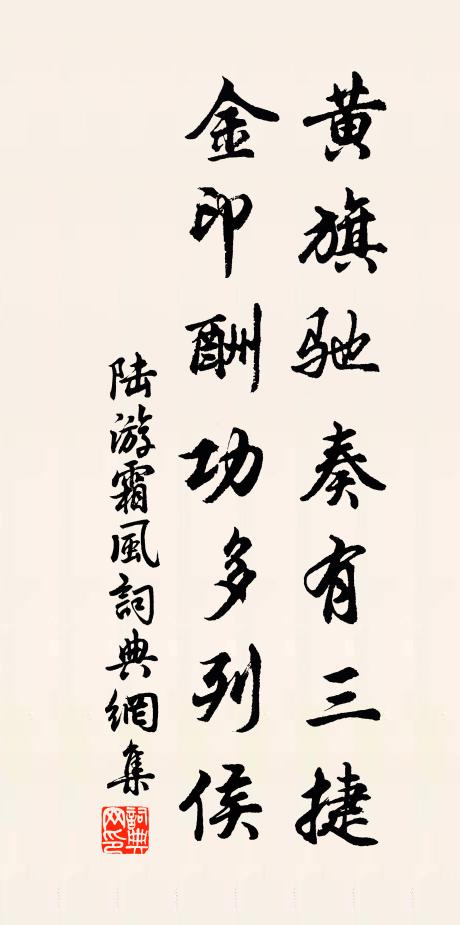 黄旗驰奏有三捷
金印酬功多列侯
陆游霜風詞典網集
詞典网印